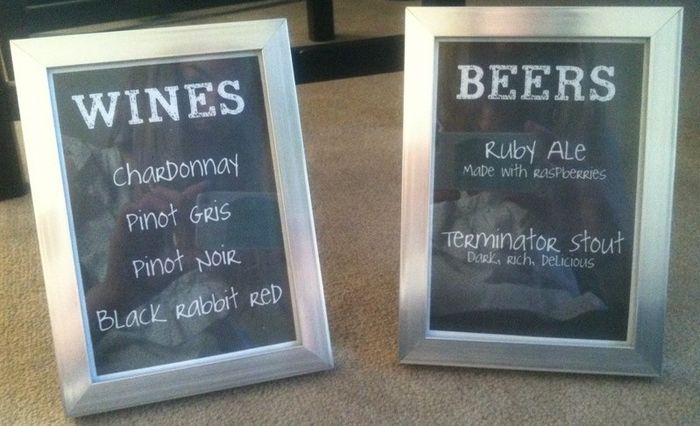 WINES
Chardonnay
Pinot Gris
Pinot Noir
Black Rabbit Red
BEERS
Ruby Ale
Made with raspberries
Terminator Stout
Dark, rich, delicious